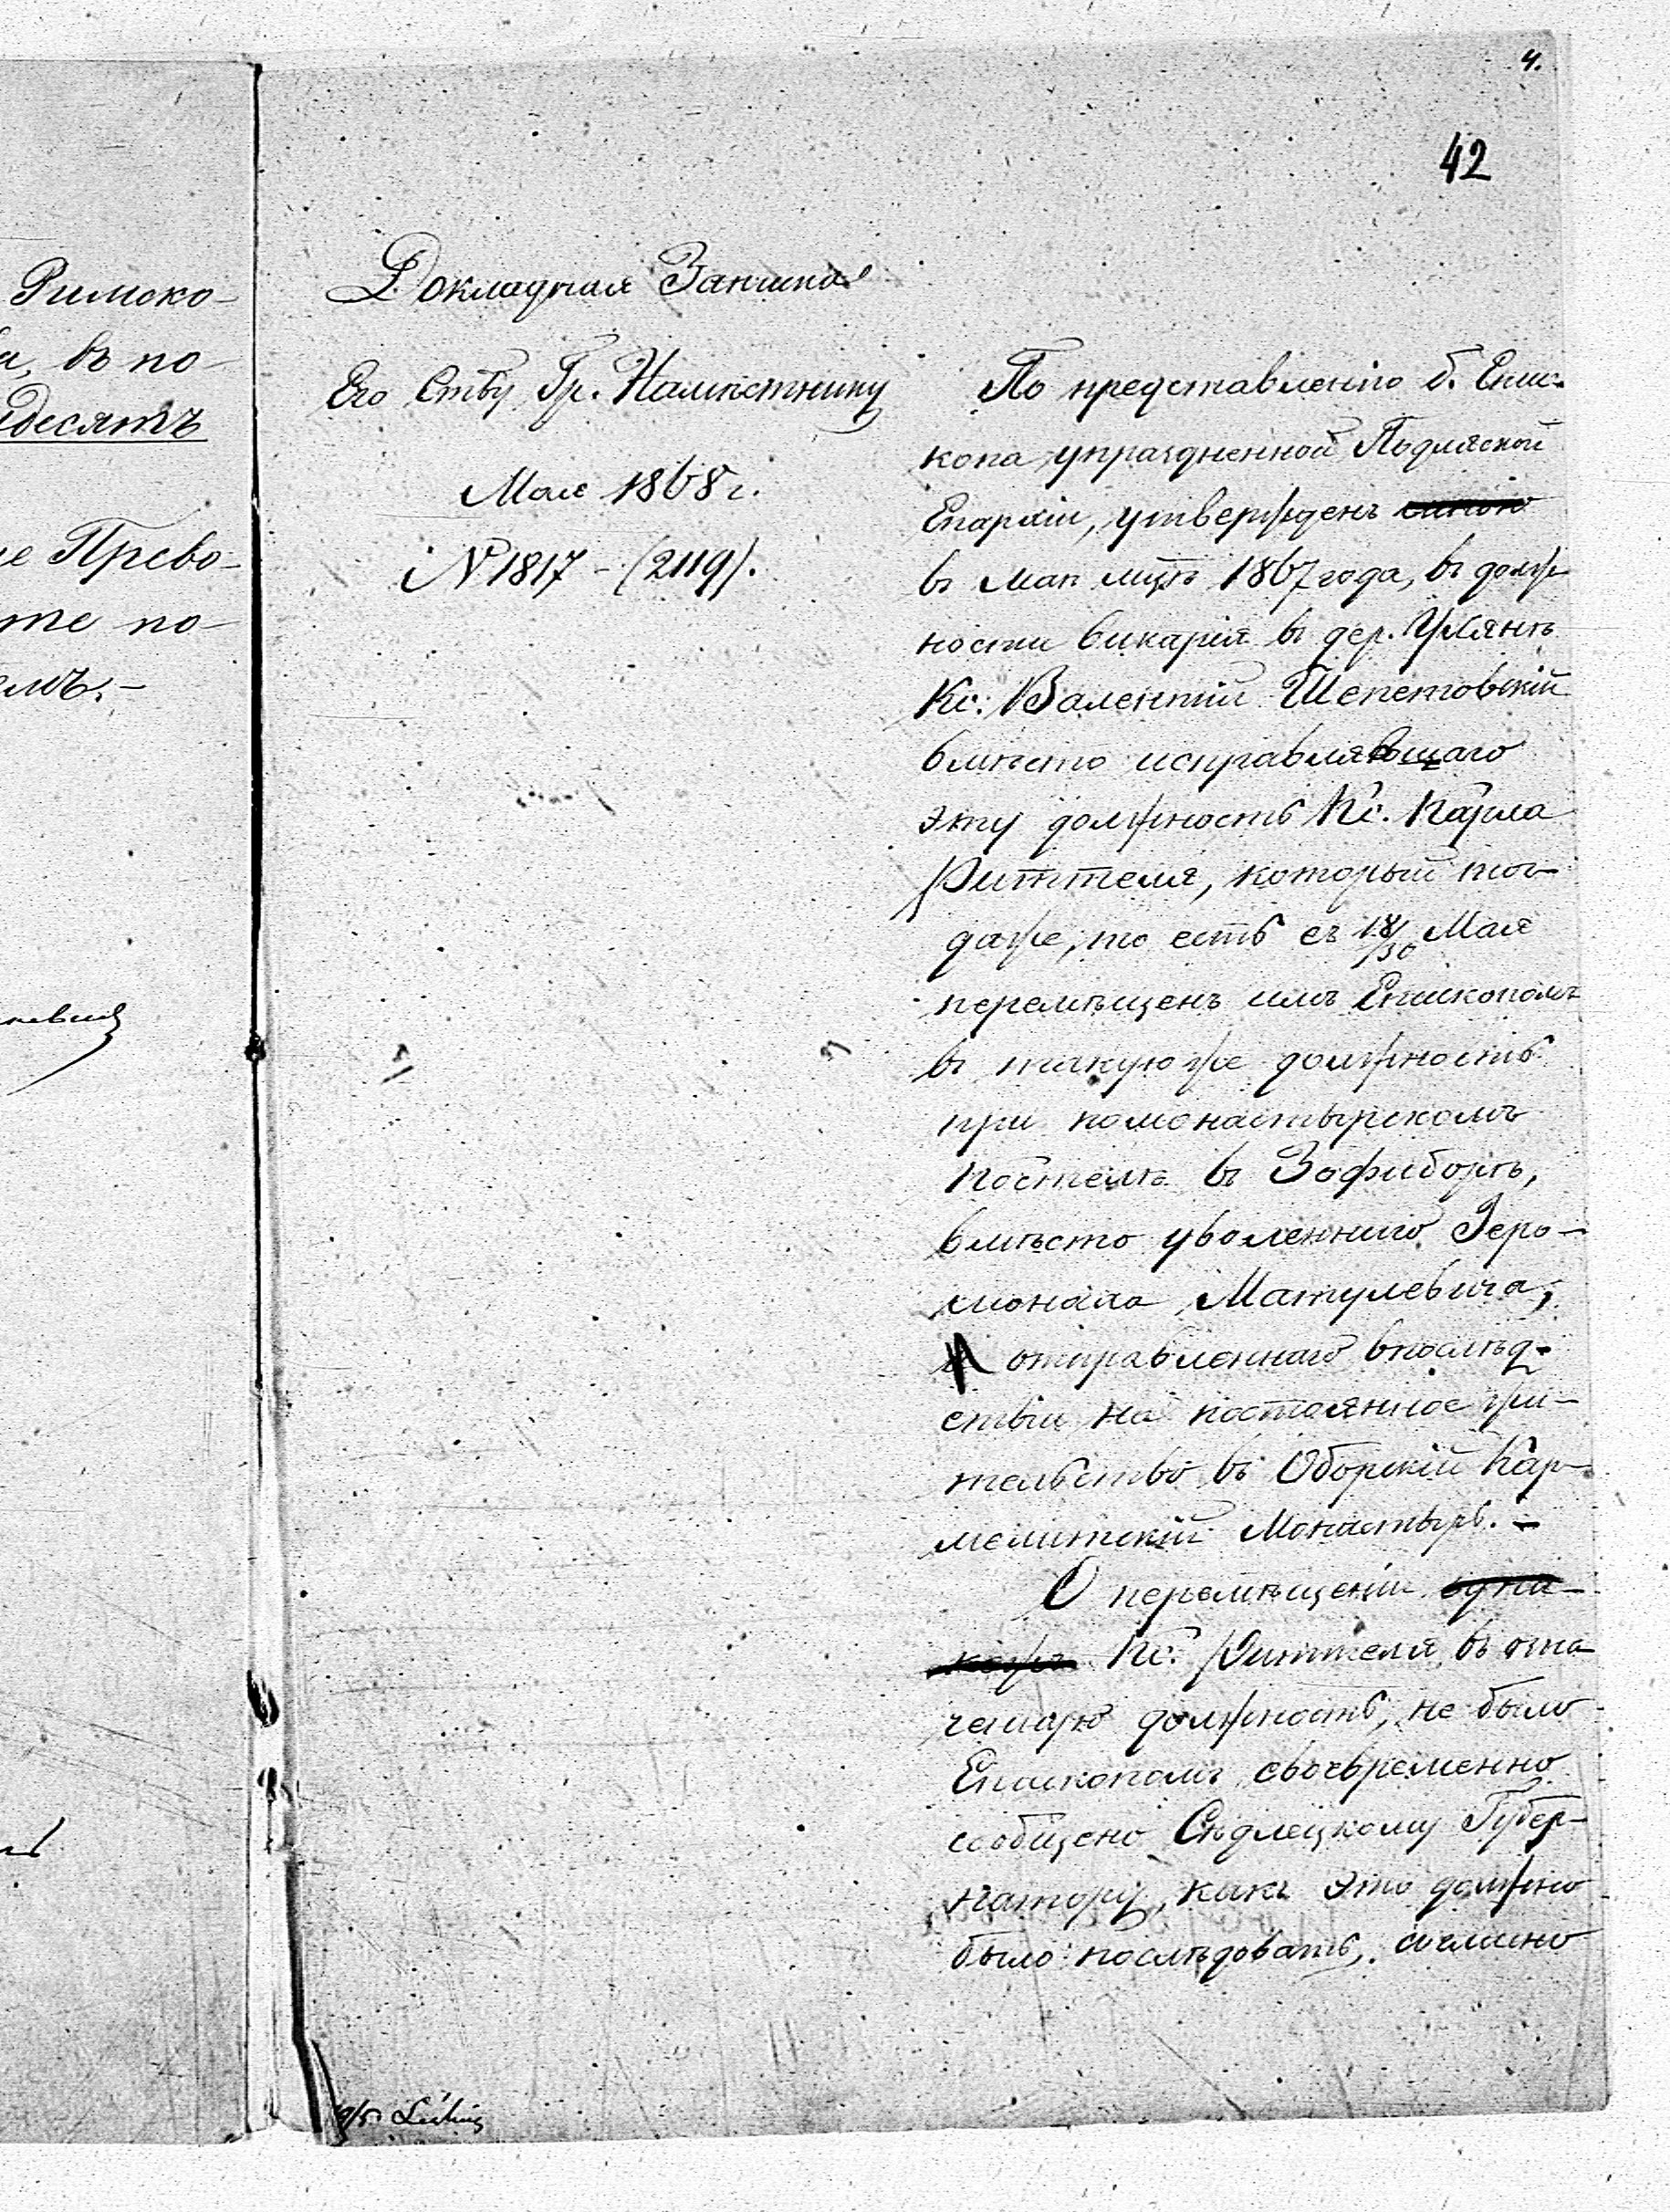 4.
42
Римско-
въ по-
десятъ
Прево-
те по-
Докладная Записка
Его Ств Гр. Намѣстнику
Мая 1868 г.
№ 1817 - (2119).
По представленію б. Епис-
копа упраздненной Подляской
Епархіи, утвержденъ
въ маѣ мцѣ 1867 года, въ долж
ности викарія въ дер. Улянъ
Кс: Валентій Шепетовскій
вмѣсто исправлявшаго
эту должность Кс. Карла
Риттеля, который тог-
даже, то есть съ 18/30 Мая
перемѣщенъ имъ Епископомъ
въ такую же должность
при помонастырскомъ
Костелѣ въ Зофиборѣ,
вмѣсто уволеннаго Іеро-
монаха Матулевича,
и отправленнаго впослѣд-
ствіи на постоянное жи-
тельство въ Оборскій Кар-
мелитскій Монастырь. -
О перемѣщеніи одна-
кожъ Кс. Риттеля въ озна
ченную должность, не было
Епископомъ своевременно
сообщено Сѣдлецкому Губер-
натору, какъ это должно
было послѣдовать, согласно